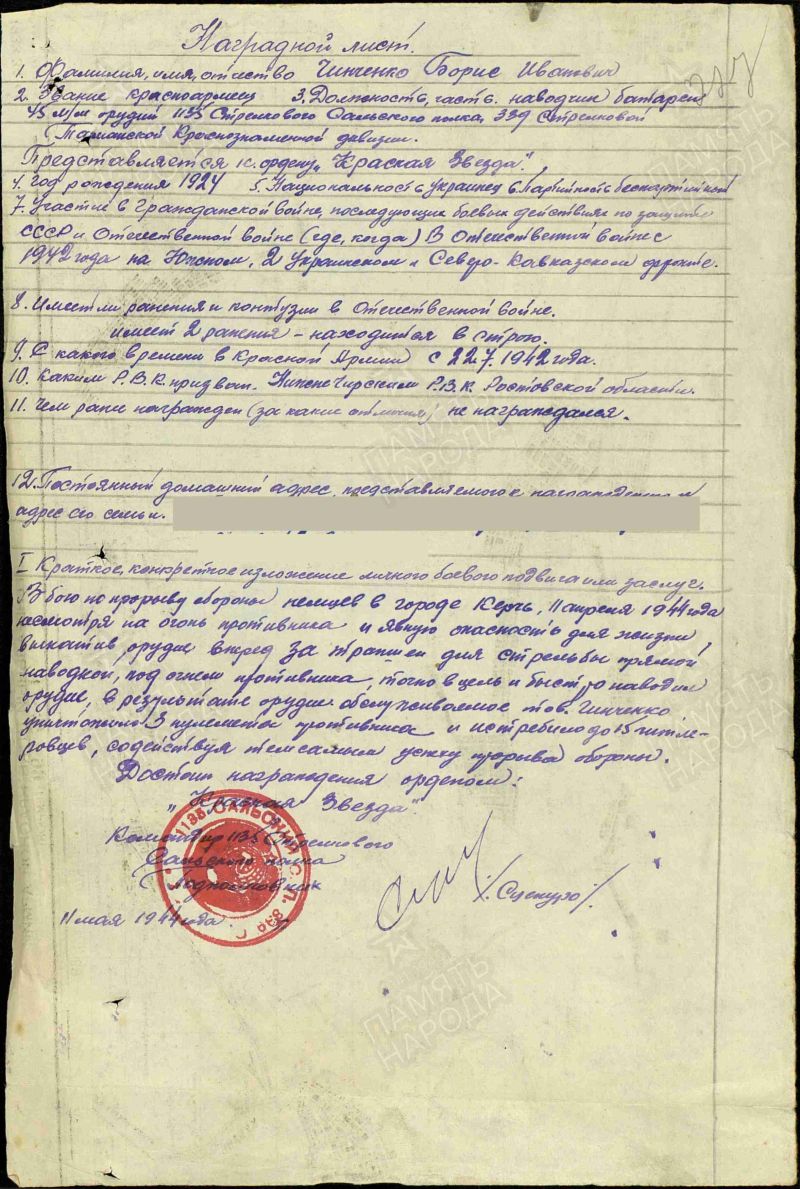 Наградной лист.
1. Фамилия, имя, отчество Чинченко Борис Иванович
2. Звание красноармеец 3. Должность, часть. наводчик батареи
45 м/м орудий 1135 Стрелкового Сальского полка, 339 Стрелковой
Таманской Краснознаменной дивизии.
Представляется к ордену „Красная Звезда".
4. Год рождения 1924 5. Национальность украинец 6. Партийность беспартийный
7. Участие в Гражданской войне, последующих боевых действиях по защите
СССР и Отечественной войне (где, когда) В Отечественной войне с
1942 года на Южном, 2 Украинском и Северо-Кавказском фронте.
8. Имеет ли ранения и контузии в Отечественной войне.
имеет 2 ранения - находится в строю.
9. С какого времени в Красной Армии с 22.7.1942 года.
10. Каким Р.В.К. призван. Нижне Чирским Р.В.К. Ростовской области.
11. Чем ранее награжден (за какие отличия) не награждался.
12. Постоянный домашний адрес, представляемого к награждению и
адрес его семьи.
I Краткое, конкретное изложение личного боевого подвига или заслуг.
В бою по прорыву обороны немцев в городе Керчь, 11 апреля 1944 года
несмотря на огонь противника и явную опасность для жизни,
выкатив орудие вперед за траншеи для стрельбы прямой
наводкой, под огнем противника, точно в цель и быстро наводил
орудие, в результате орудие обслуживаемое тов. Чинченко
уничтожило 3 пулемета противника и истребило до 15 гитле-
ровцев, содействуя тем самым успеху прорыва обороны.
Достоин награждения орденом:
„Красная Звезда".
Командир 1135 Стрелкового
Сальского полка
Подполковник /Сцепуро/
11 мая 1944 года.
1135 САЛЬСКИЙ С.П. 339
ПАМЯТЬ
НАРОДА